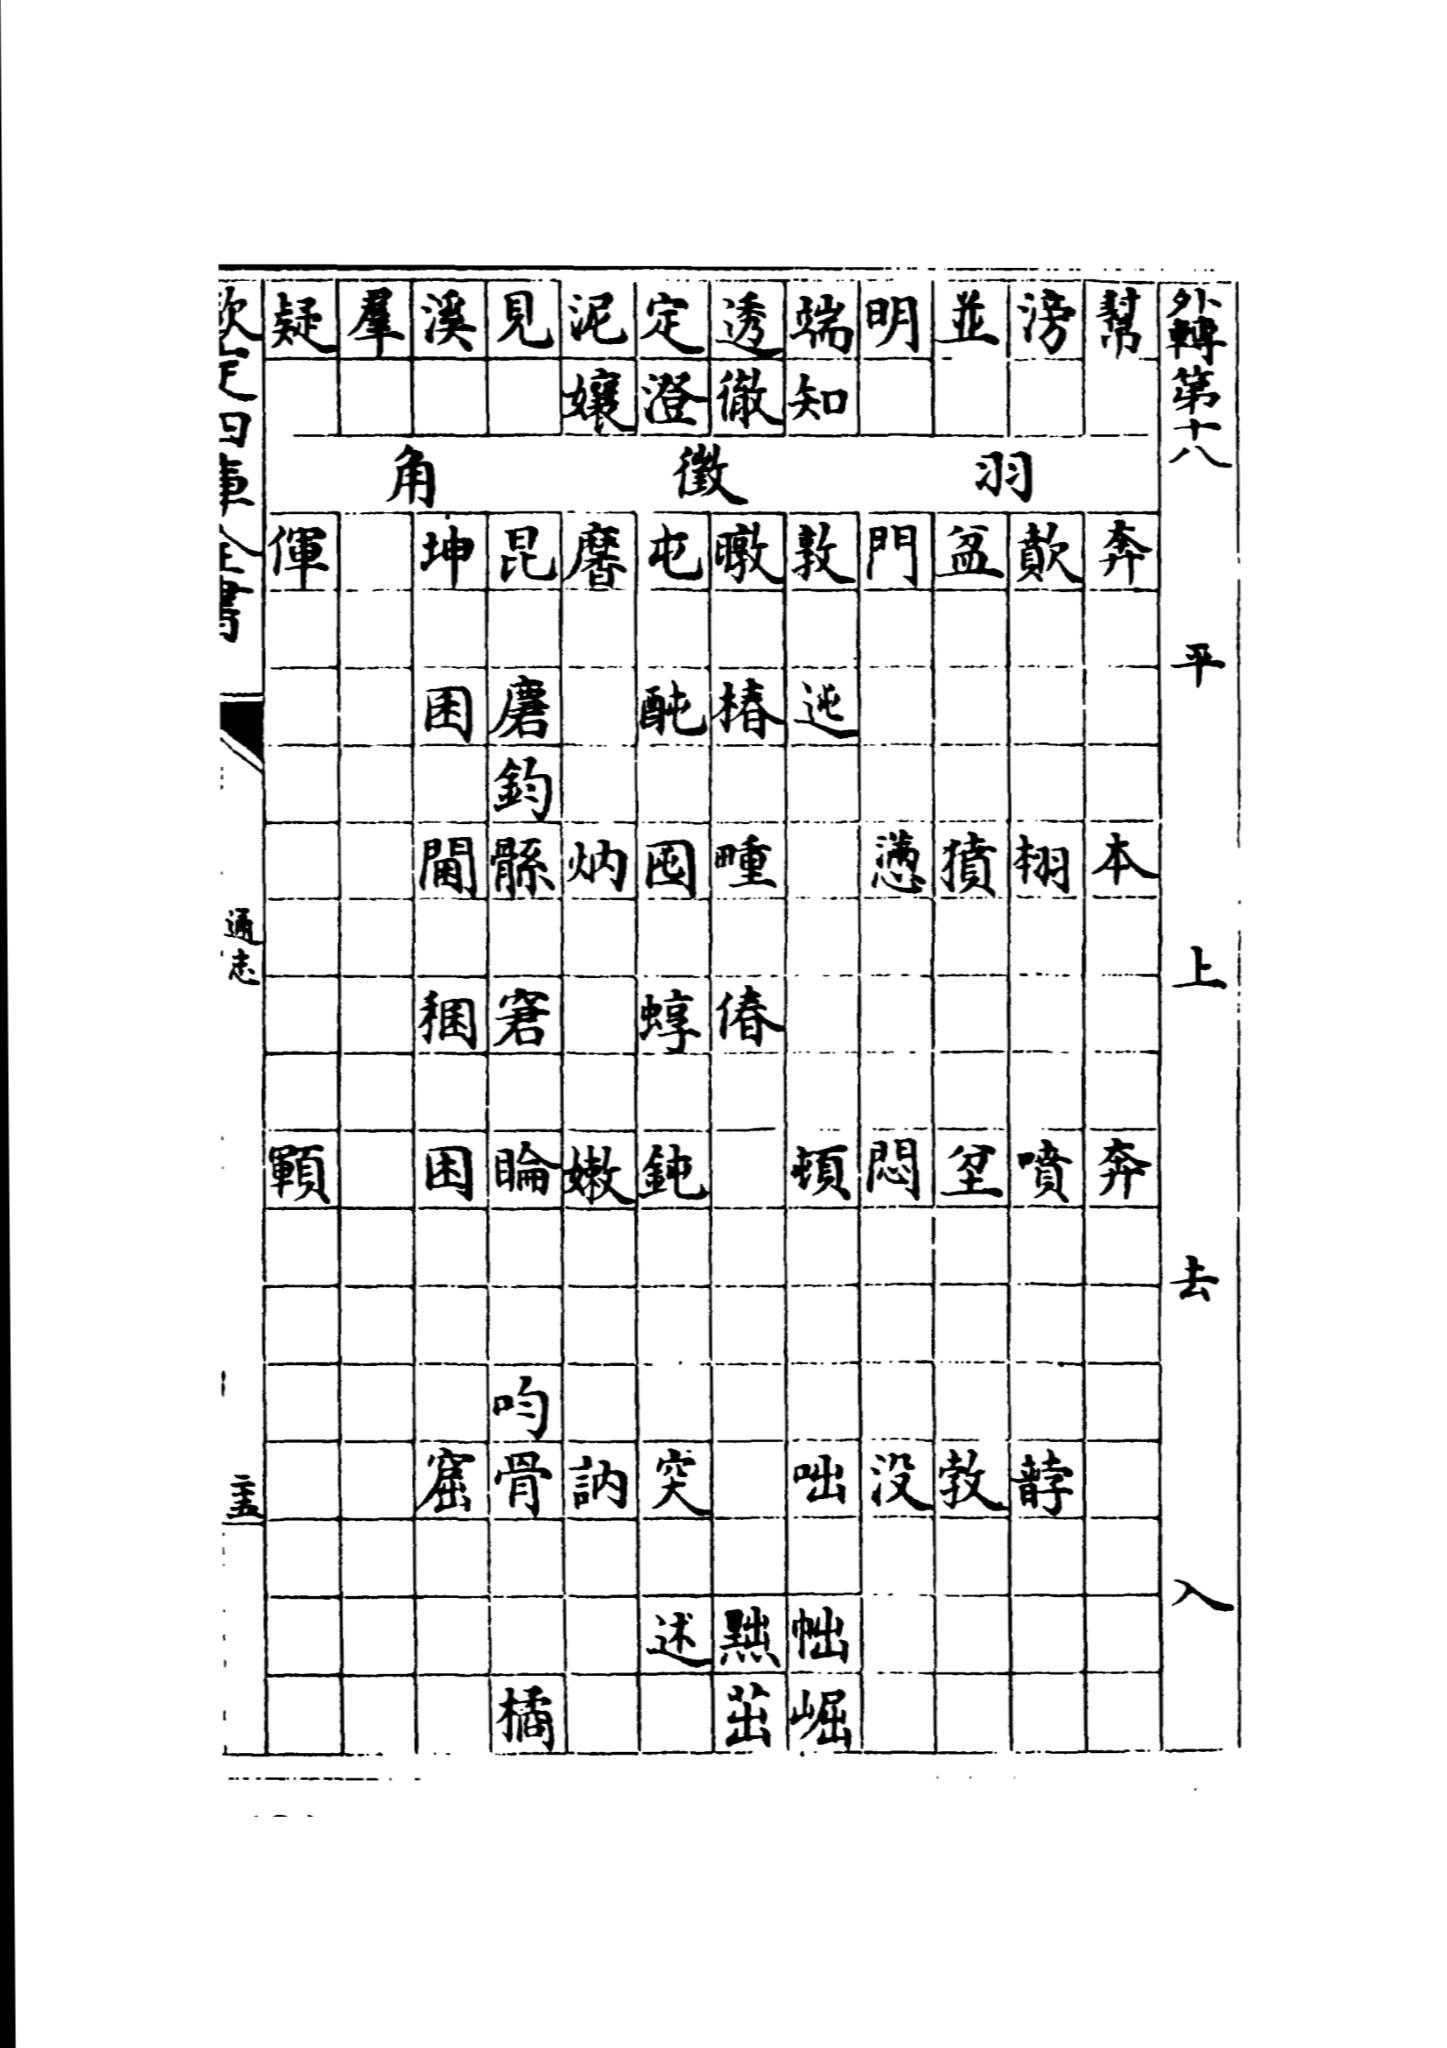 外轉第十八 平 上 去 入
幫 奔 本 奔
滂 羽 歕 栩 噴
並 盆 獖 坌
明 門 懣 悶 没
端 知 敦 迍 頓 咄 崛
透 徹 暾 椿 畽 偆 黜 茁
定 澄 徵 屯 囤 蜳 鈍 突 述
泥 孃 黁 嫩 訥
見 昆 麏 鈞 鯀 窘 睔 呁 骨 橘
溪 角 坤 囷 閫 稇 困 窟
羣
疑 顐
欽定四庫全書 通志